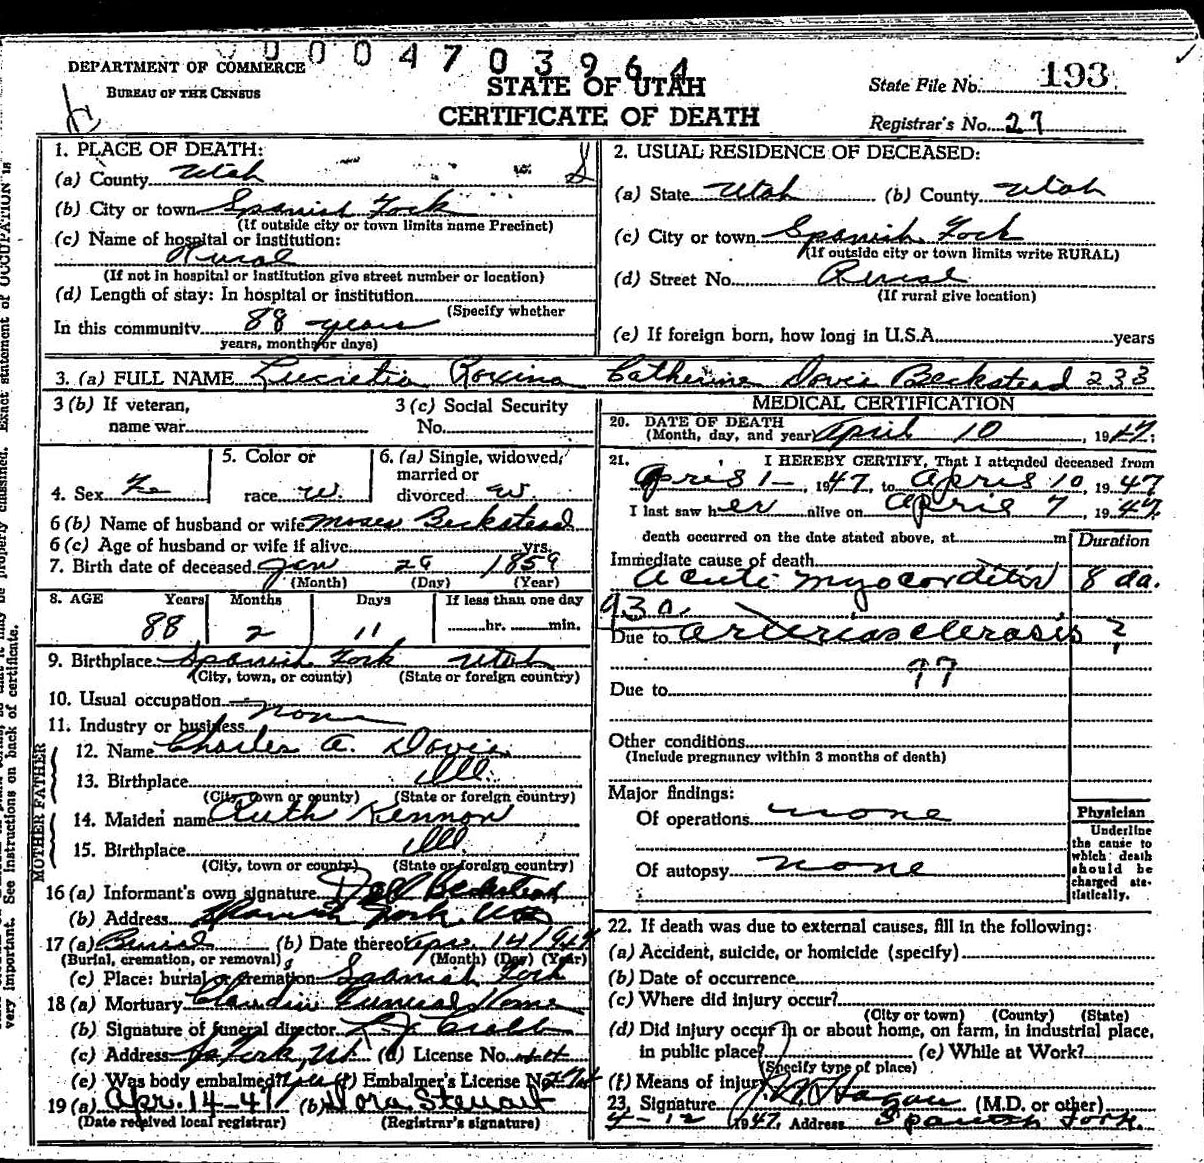 00004703964
DEPARTMENT OF COMMERCE
BUREAU OF THE CENSUS
STATE OF UTAH
CERTIFICATE OF DEATH
State File No. 193
Registrar's No. 27
1. PLACE OF DEATH:
(a) County Utah
(b) City or town Spanish Fork
(If outside city or town limits name Precinct)
(c) Name of hospital or institution:
Rural
(If not in hospital or institution give street number or location)
(d) Length of stay: In hospital or institution
(Specify whether
In this community 88 years
years, months or days)
2. USUAL RESIDENCE OF DECEASED:
(a) State Utah (b) County Utah
(c) City or town Spanish Fork
(If outside city or town limits write RURAL)
(d) Street No. Rural
(If rural give location)
(e) If foreign born, how long in U.S.A. years
3. (a) FULL NAME Lucretia Roxina Catherine Davis Beckstead 233
3 (b) If veteran,
name war
3 (c) Social Security
No.
4. Sex Fe
5. Color or
race W.
6. (a) Single, widowed,
married or
divorced W.
6 (b) Name of husband or wife Moses Beckstead
6 (c) Age of husband or wife if alive yrs.
7. Birth date of deceased Jan 29 1859
(Month) (Day) (Year)
8. AGE Years Months Days If less than one day
88 2 11 hr. min.
9. Birthplace Spanish Fork Utah
(City, town, or county) (State or foreign country)
10. Usual occupation none
11. Industry or business
FATHER
12. Name Charles A. Davis
13. Birthplace Ill.
(City, town or county) (State or foreign country)
MOTHER
14. Maiden name Ruth Kennon
15. Birthplace Ill.
(City, town or county) (State or foreign country)
16 (a) Informant's own signature Dell Beckstead
(b) Address Spanish Fork
17 (a) Burial (b) Date thereof Apr. 14 1947
(Burial, cremation, or removal) (Month) (Day) (Year)
(c) Place: burial or cremation Spanish Fork
18 (a) Mortuary Claudin Funeral Home
(b) Signature of funeral director
(c) Address Sp. Fork, Ut. (d) License No.
(e) Was body embalmed? Yes (f) Embalmer's License No.
19 (a) Apr. 14-47 (b) Dora Stewart
(Date received local registrar) (Registrar's signature)
MEDICAL CERTIFICATION
20. DATE OF DEATH
(Month, day, and year) April 10, 1947.
21. I HEREBY CERTIFY, That I attended deceased from
April 1-, 1947, to April 10, 1947
I last saw her alive on April 7, 1947.
death occurred on the date stated above, at m
Duration
Immediate cause of death
acute myocarditis 8 da.
93a
Due to arteriosclerosis ?
97
Due to
Other conditions
(Include pregnancy within 3 months of death)
Major findings:
Of operations none
Of autopsy none
Physician
Underline
the cause to
which death
should be
charged sta-
tistically.
22. If death was due to external causes, fill in the following:
(a) Accident, suicide, or homicide (specify)
(b) Date of occurrence
(c) Where did injury occur?
(City or town) (County) (State)
(d) Did injury occur in or about home, on farm, in industrial place,
in public place? (e) While at Work?
(Specify type of place)
(f) Means of injury
23. Signature J. W. Hagan (M.D. or other)
4-12 1947. Address Spanish Fork.
very important. See instructions on back of certificate.
be properly classified. Exact statement of OCCUPATION is